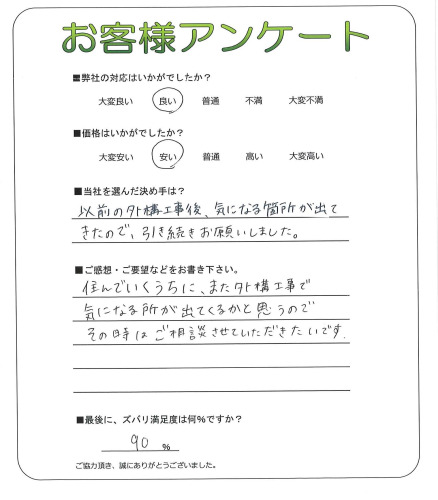 お客様アンケート
■弊社の対応はいかがでしたか?
大変良い 良い 普通 不満 大変不満
■価格はいかがでしたか?
大変安い 安い 普通 高い 大変高い
■当社を選んだ決め手は?
以前の外構工事後、気になる箇所が出て
きたので、引き続きお願いしました。
■ご感想・ご要望などをお書き下さい。
住んでいくうちに、また外構工事で
気になる所が出てくるかと思うので
その時はご相談させていただきたいです.
■最後に、ズバリ満足度は何%ですか?
90 %
ご協力頂き、誠にありがとうございました。